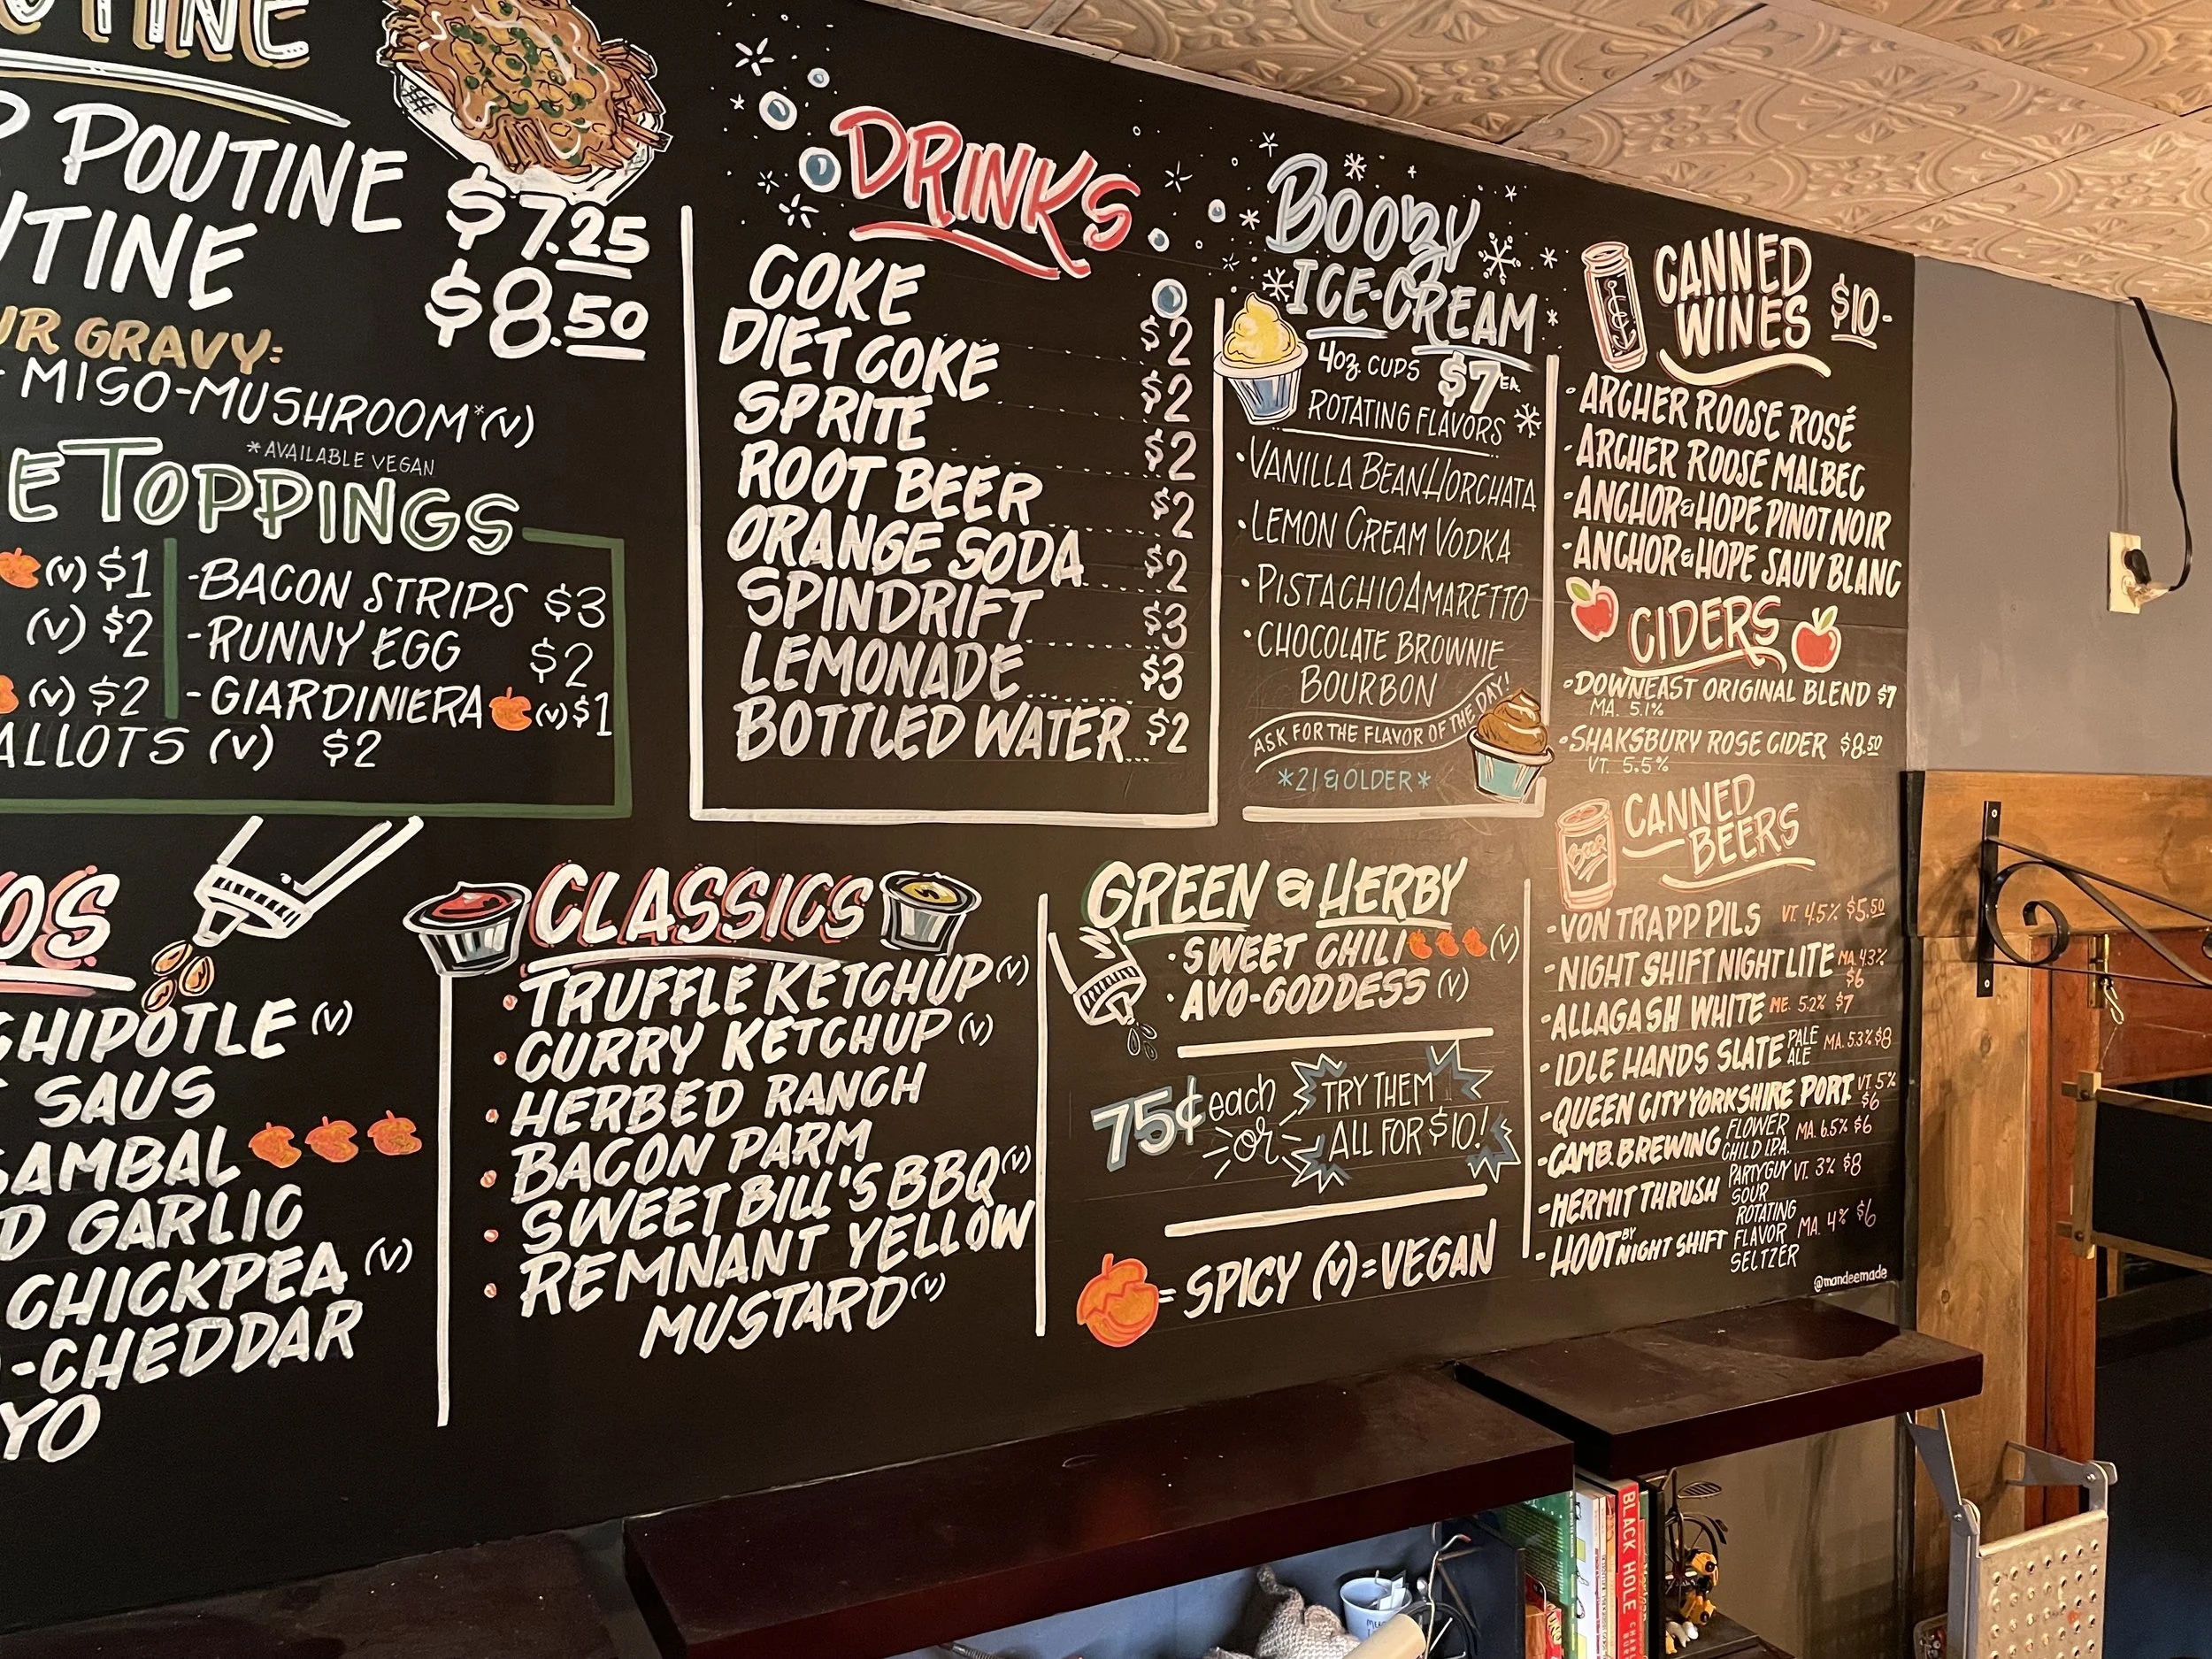 POUTINE $7.25
$8.50
GRAVY:
MISO-MUSHROOM*(V)
*AVAILABLE VEGAN
TOPPINGS
(V) $1
(V) $2
(V) $2
(V) $2
-BACON STRIPS $3
-RUNNY EGG $2
-GIARDINIERA (V) $1
CHIPOTLE (V)
SAUS
SAMBAL
GARLIC
CHICKPEA (V)
-CHEDDAR
DRINKS
COKE $2
DIET COKE $2
SPRITE $2
ROOT BEER $2
ORANGE SODA $2
SPINDRIFT $3
LEMONADE $3
BOTTLED WATER... $2
BOOZY
ICE-CREAM
4oz CUPS $7 EA.
ROTATING FLAVORS
·VANILLA BEAN HORCHATA
·LEMON CREAM VODKA
·PISTACHIO AMARETTO
·CHOCOLATE BROWNIE
BOURBON
ASK FOR THE FLAVOR OF THE DAY!
*21 & OLDER*
CANNED
WINES $10-
-ARCHER ROOSE ROSÉ
-ARCHER ROOSE MALBEC
-ANCHOR & HOPE PINOT NOIR
-ANCHOR & HOPE SAUV BLANC
CIDERS
-DOWNEAST ORIGINAL BLEND $7
MA. 5.1%
-SHAKSBURY ROSE CIDER $8.50
VT. 5.5%
CANNED
BEERS
BEER
-VON TRAPP PILS VT. 4.5% $5.50
-NIGHT SHIFT NIGHT LITE MA. 4.3%
$6
-ALLAGASH WHITE ME. 5.2% $7
-IDLE HANDS SLATE PALE ALE MA. 5.3% $8
-QUEEN CITY YORKSHIRE PORT VT. 5%
$6
-CAMB. BREWING FLOWER CHILD I.P.A. MA. 6.5% $6
-HERMIT THRUSH PARTY GUY SOUR VT. 3% $8
-HOOT BY NIGHT SHIFT ROTATING FLAVOR SELTZER MA. 4% $6
@mandeemade
CLASSICS
TRUFFLE KETCHUP (V)
CURRY KETCHUP (V)
HERBED RANCH
BACON PARM
SWEET BILL'S BBQ (V)
REMNANT YELLOW
MUSTARD (V)
GREEN & HERBY
·SWEET CHILI (V)
·AVO-GODDESS (V)
75¢ each
or
TRY THEM
ALL FOR $10!
= SPICY (V)=VEGAN
BLACK HOLE